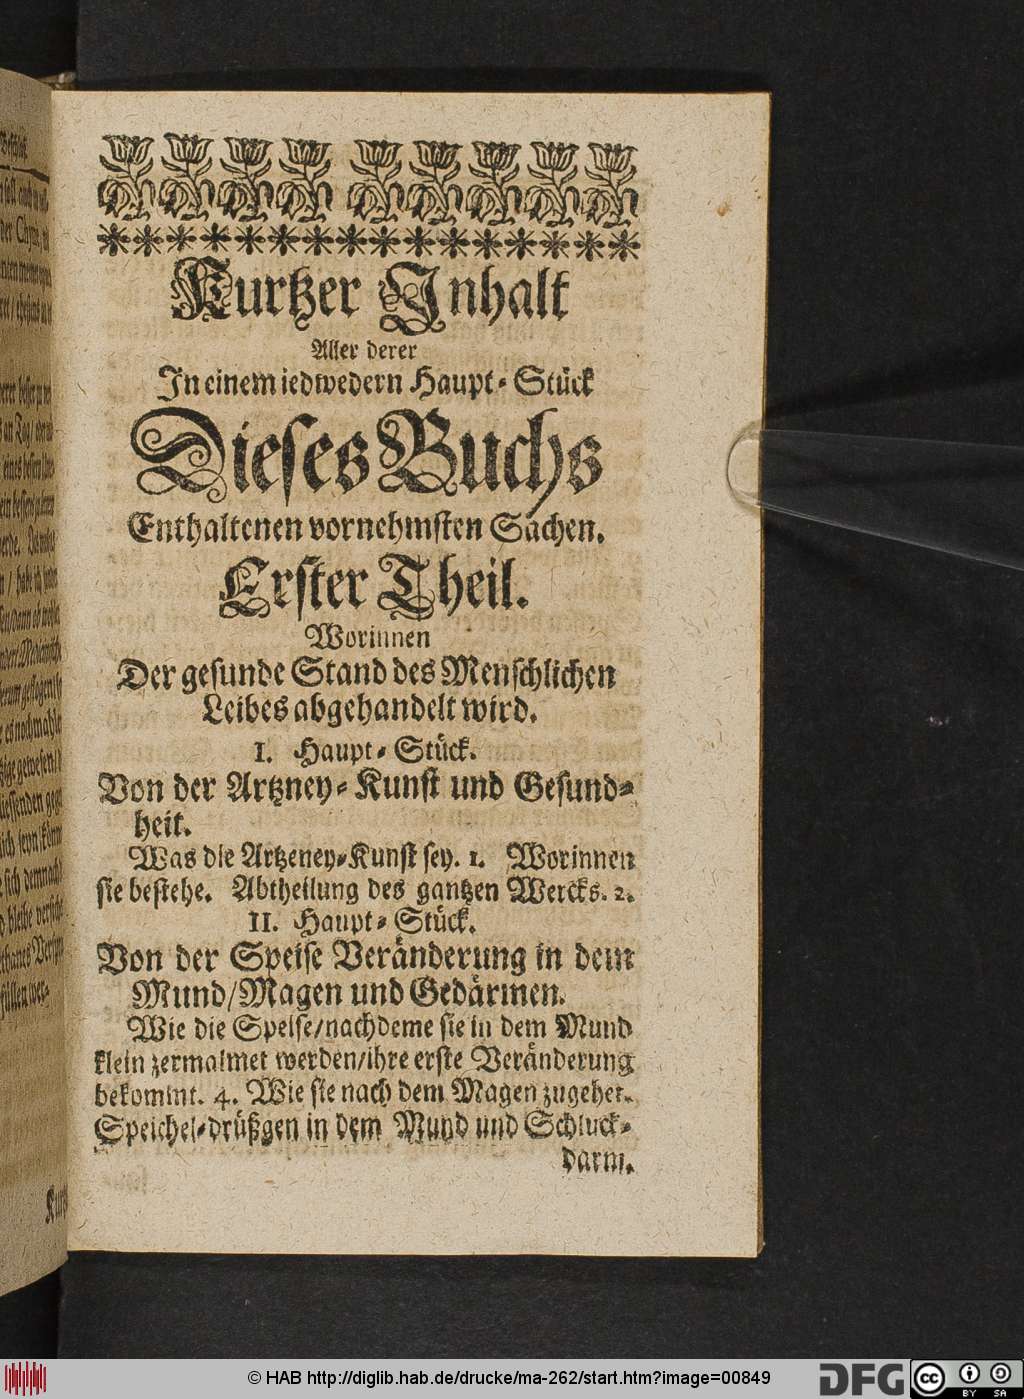 Kurtzer Inhalt
Aller derer
In einem iedwedern Haupt-Stück
Dieses Buchs
Enthaltenen vornehmsten Sachen.
Erster Theil.
Worinnen
Der gesunde Stand des Menschlichen
Leibes abgehandelt wird.
I. Haupt-Stück.
Von der Artzney-Kunst und Gesund-
heit.
Was die Artzeney-Kunst sey. 1. Worinnen
sie bestehe. Abtheilung des gantzen Wercks. 2.
II. Haupt-Stück.
Von der Speise Veränderung in dem
Mund/Magen und Gedärmen.
Wie die Speise/nachdeme sie in dem Mund
klein zermalmet werden/ihre erste Veränderung
bekommt. 4. Wie sie nach dem Magen zugehet.
Speichel-drüßgen in dem Mund und Schluck-
darm.
© HAB http://diglib.hab.de/drucke/ma-262/start.htm?image=00849
DFG
cc BY SA